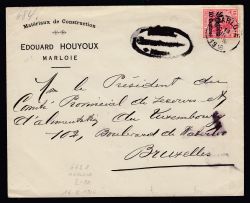 Matériaux de Construction
EDOUARD HOUYOUX
MARLOIE
Mr le Président du
Comité Provincial de secours et
d'alimentation du Luxembourg
102, Boulevard de
Bruxelles